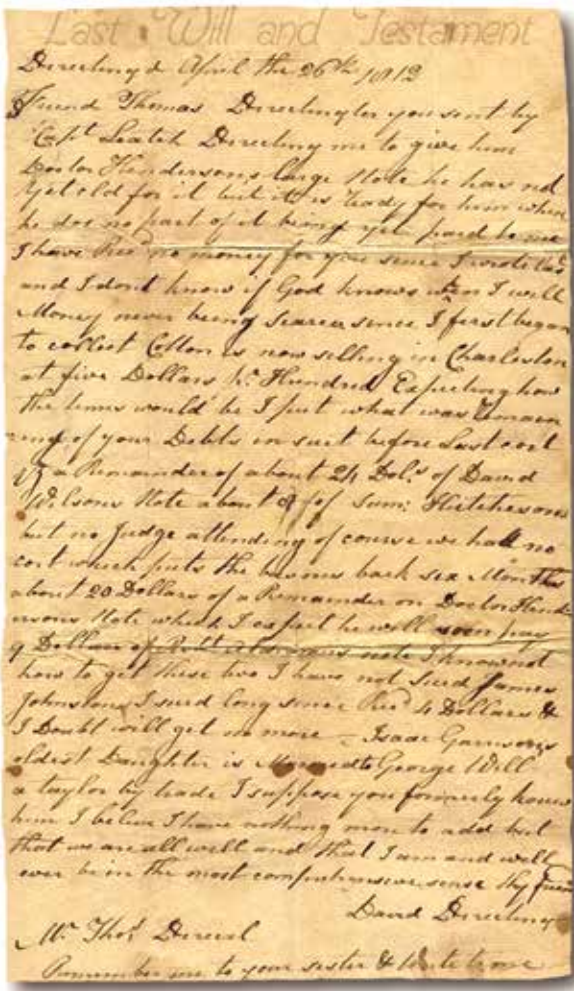 Last Will and Testament
April the 26th 1812
Friend Thomas you sent by
Capt Leatch Directing me to give him
Doctor Hendersons large Note he has not
Yet old for it but it is ready for him when
he dos no part of it being yet paid to me
I have Recd no money for you since I wrote last
and I dont know if God knows when I will
Money never being scarcer since I first began
to collect Cotton is now selling in Charleston
at five Dollars pr Hundred Expecting how
the times would be I put what was Remain
ing of your Debts in suit before Last cort
a Remainder of about 24 Dols of David
Wilsons Note about of Saml Hutchesons
but no Judge attending of course we had no
cort which puts the back six Months
about 20 Dollars of a Remainder on Doctor Hend
ersons Note which I expect he will soon pay
9 Dollars of note I know not
how to get these two I have not sued James
Johnstons I sued long since Recd 4 Dollars &
I Doubt will get no more – Isaac
oldest Daughter is Married to George Will
a taylor by trade I suppose you formerly knew
him I believ I have nothing more to add but
that we are all well and that I am and will
ever be in the most comprehensive sense thy friend
David
Mr Thos
Remember me to your sister & write to me